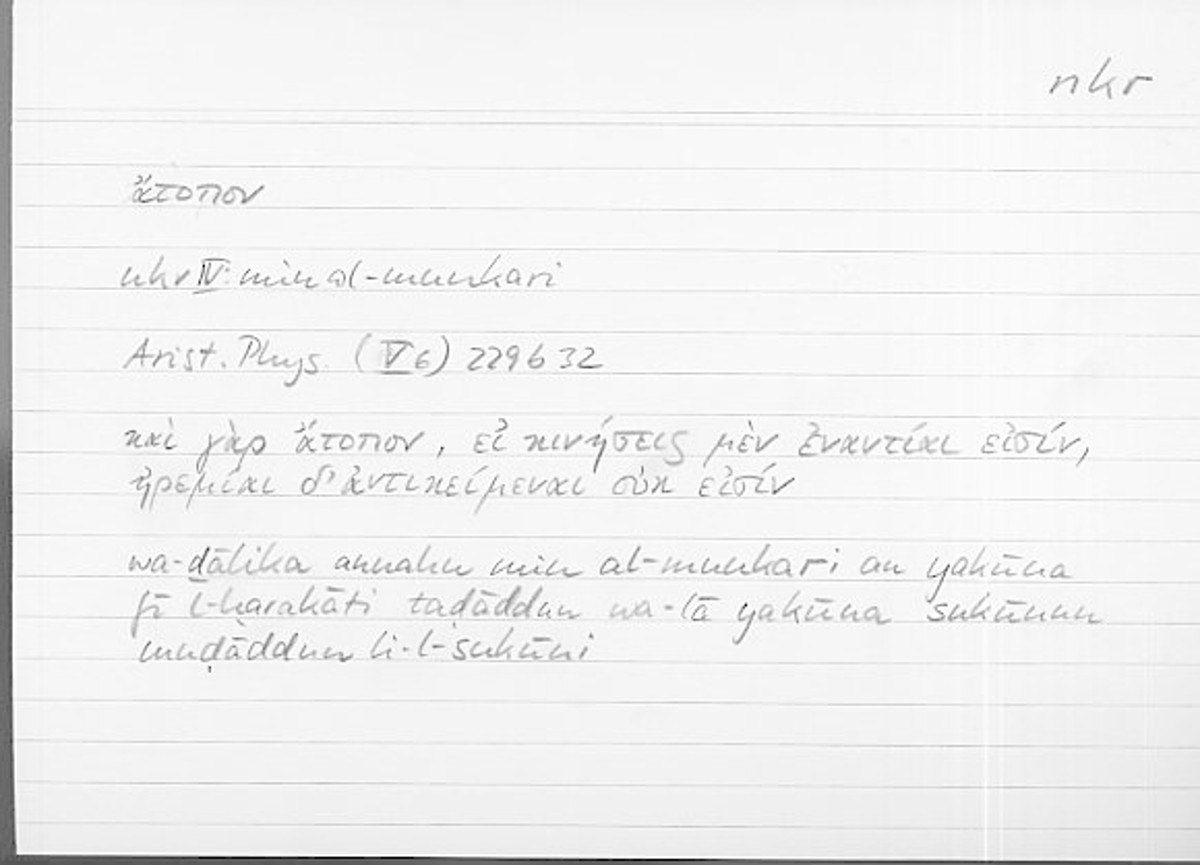 nkr
ἄτοπον
nkr IV: min al-munkari
Arist. Phys. (V 6) 229b32
καὶ γὰρ ἄτοπον, εἰ κινήσεις μὲν ἐναντίαι εἰσίν,
ἠρεμίαι δ' ἀντικείμεναι οὐκ εἰσίν
wa-ḏālika annahu min al-munkari an yakūna
fī l-ḥarakāti taḍāddun wa-lā yakūna sukūnun
muḍāddun li-l-sukūni